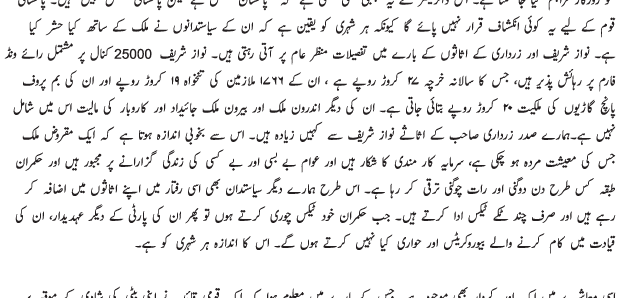 قوم کے لیے یہ کوئی انکشاف قرار نہیں پائے گا کیونکہ ہر شہری کو یقین ہے کہ ان کے سیاستدانوں نے ملک کے ساتھ کیا حشر کیا
ہے۔ نواز شریف اور زرداری کے اثاثوں کے بارے میں تفصیلات منظر عام پر آتی رہتی ہیں۔ نواز شریف 25000 کنال پر مشتمل رائے ونڈ
فارم پر رہائش پذیر ہیں، جس کا سالانہ خرچہ ۲۷ کروڑ روپے ہے ، ان کے ۱۷۶۶ ملازمین کی تنخواہ ۱۹ کروڑ روپے اور ان کی بم پروف
پانچ گاڑیوں کی ملکیت ۲۰ کروڑ روپے بتائی جاتی ہے۔ ان کی دیگر اندرون ملک اور بیرون ملک جائیداد اور کاروبار کی مالیت اس میں شامل
نہیں ہے۔ہمارے صدر زرداری صاحب کے اثاثے نواز شریف سے کہیں زیادہ ہیں۔ اس سے بخوبی اندازہ ہوتا ہے کہ ایک مقروض ملک
جس کی معیشت مردہ ہو چکی ہے، سرمایہ کار مندی کا شکار ہیں اور عوام بے بسی اور بے کسی کی زندگی گزارانے پر مجبور ہیں اور حکمران
طبقہ کس طرح دن دوگنی اور رات چوگنی ترقی کر رہا ہے۔ اس طرح ہمارے دیگر سیاستدان بھی اسی رفتار میں اپنے اثاثوں میں اضافہ کر
رہے ہیں اور صرف چند ٹکے ٹیکس ادا کرتے ہیں۔ جب حکمران خود ٹیکس چوری کرتے ہوں تو پھر ان کی پارٹی کے دیگر عہدیدار، ان کی
قیادت میں کام کرنے والے بیوروکریٹس اور حواری کیا نہیں کرتے ہوں گے۔ اس کا اندازہ ہر شہری کو ہے۔